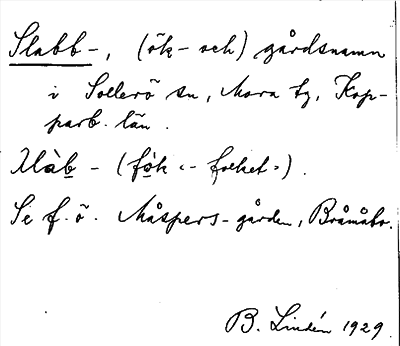 Slabb-, (ök- och) gårdsnamn
i Sollerö sn, Mora by, Kop-
parb. län.
Slàb - (fök <- folket>).
Se f. ö. Måspers-gården, Bråmåbo.
B. Lindén 1929.